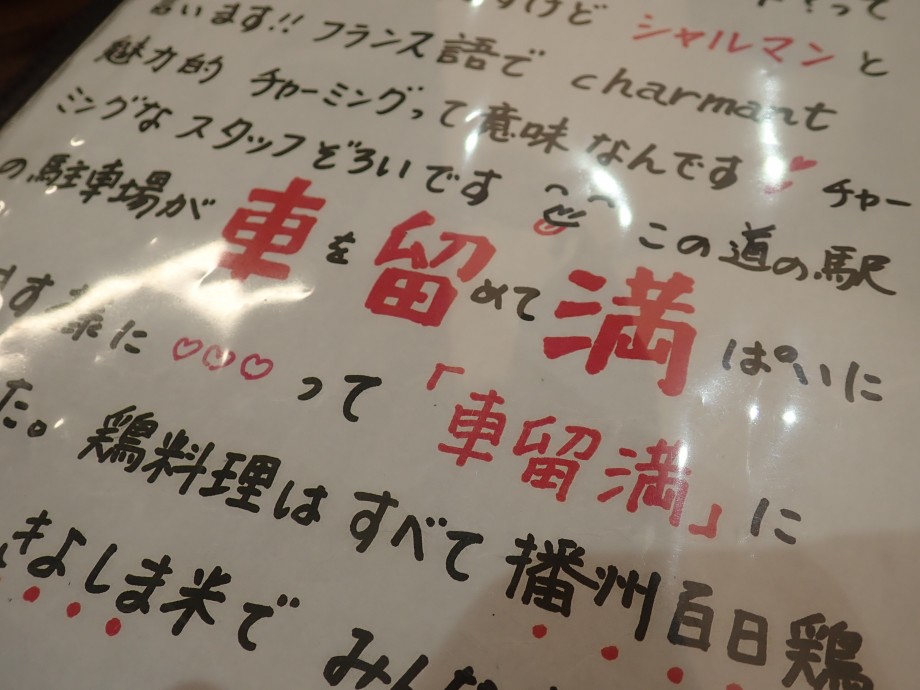 すけど シャルマン と
言います!! フランス語で charmant
魅力的 チャーミングって意味なんです♡ チャー
ミングな スタッフぞろいです この道の駅
の駐車場が 車を留めて満ぱいに
す様に ♡♡♡ って 「車留満」に
た。鶏料理は すべて 播州百日鶏
きよしま米で みんな